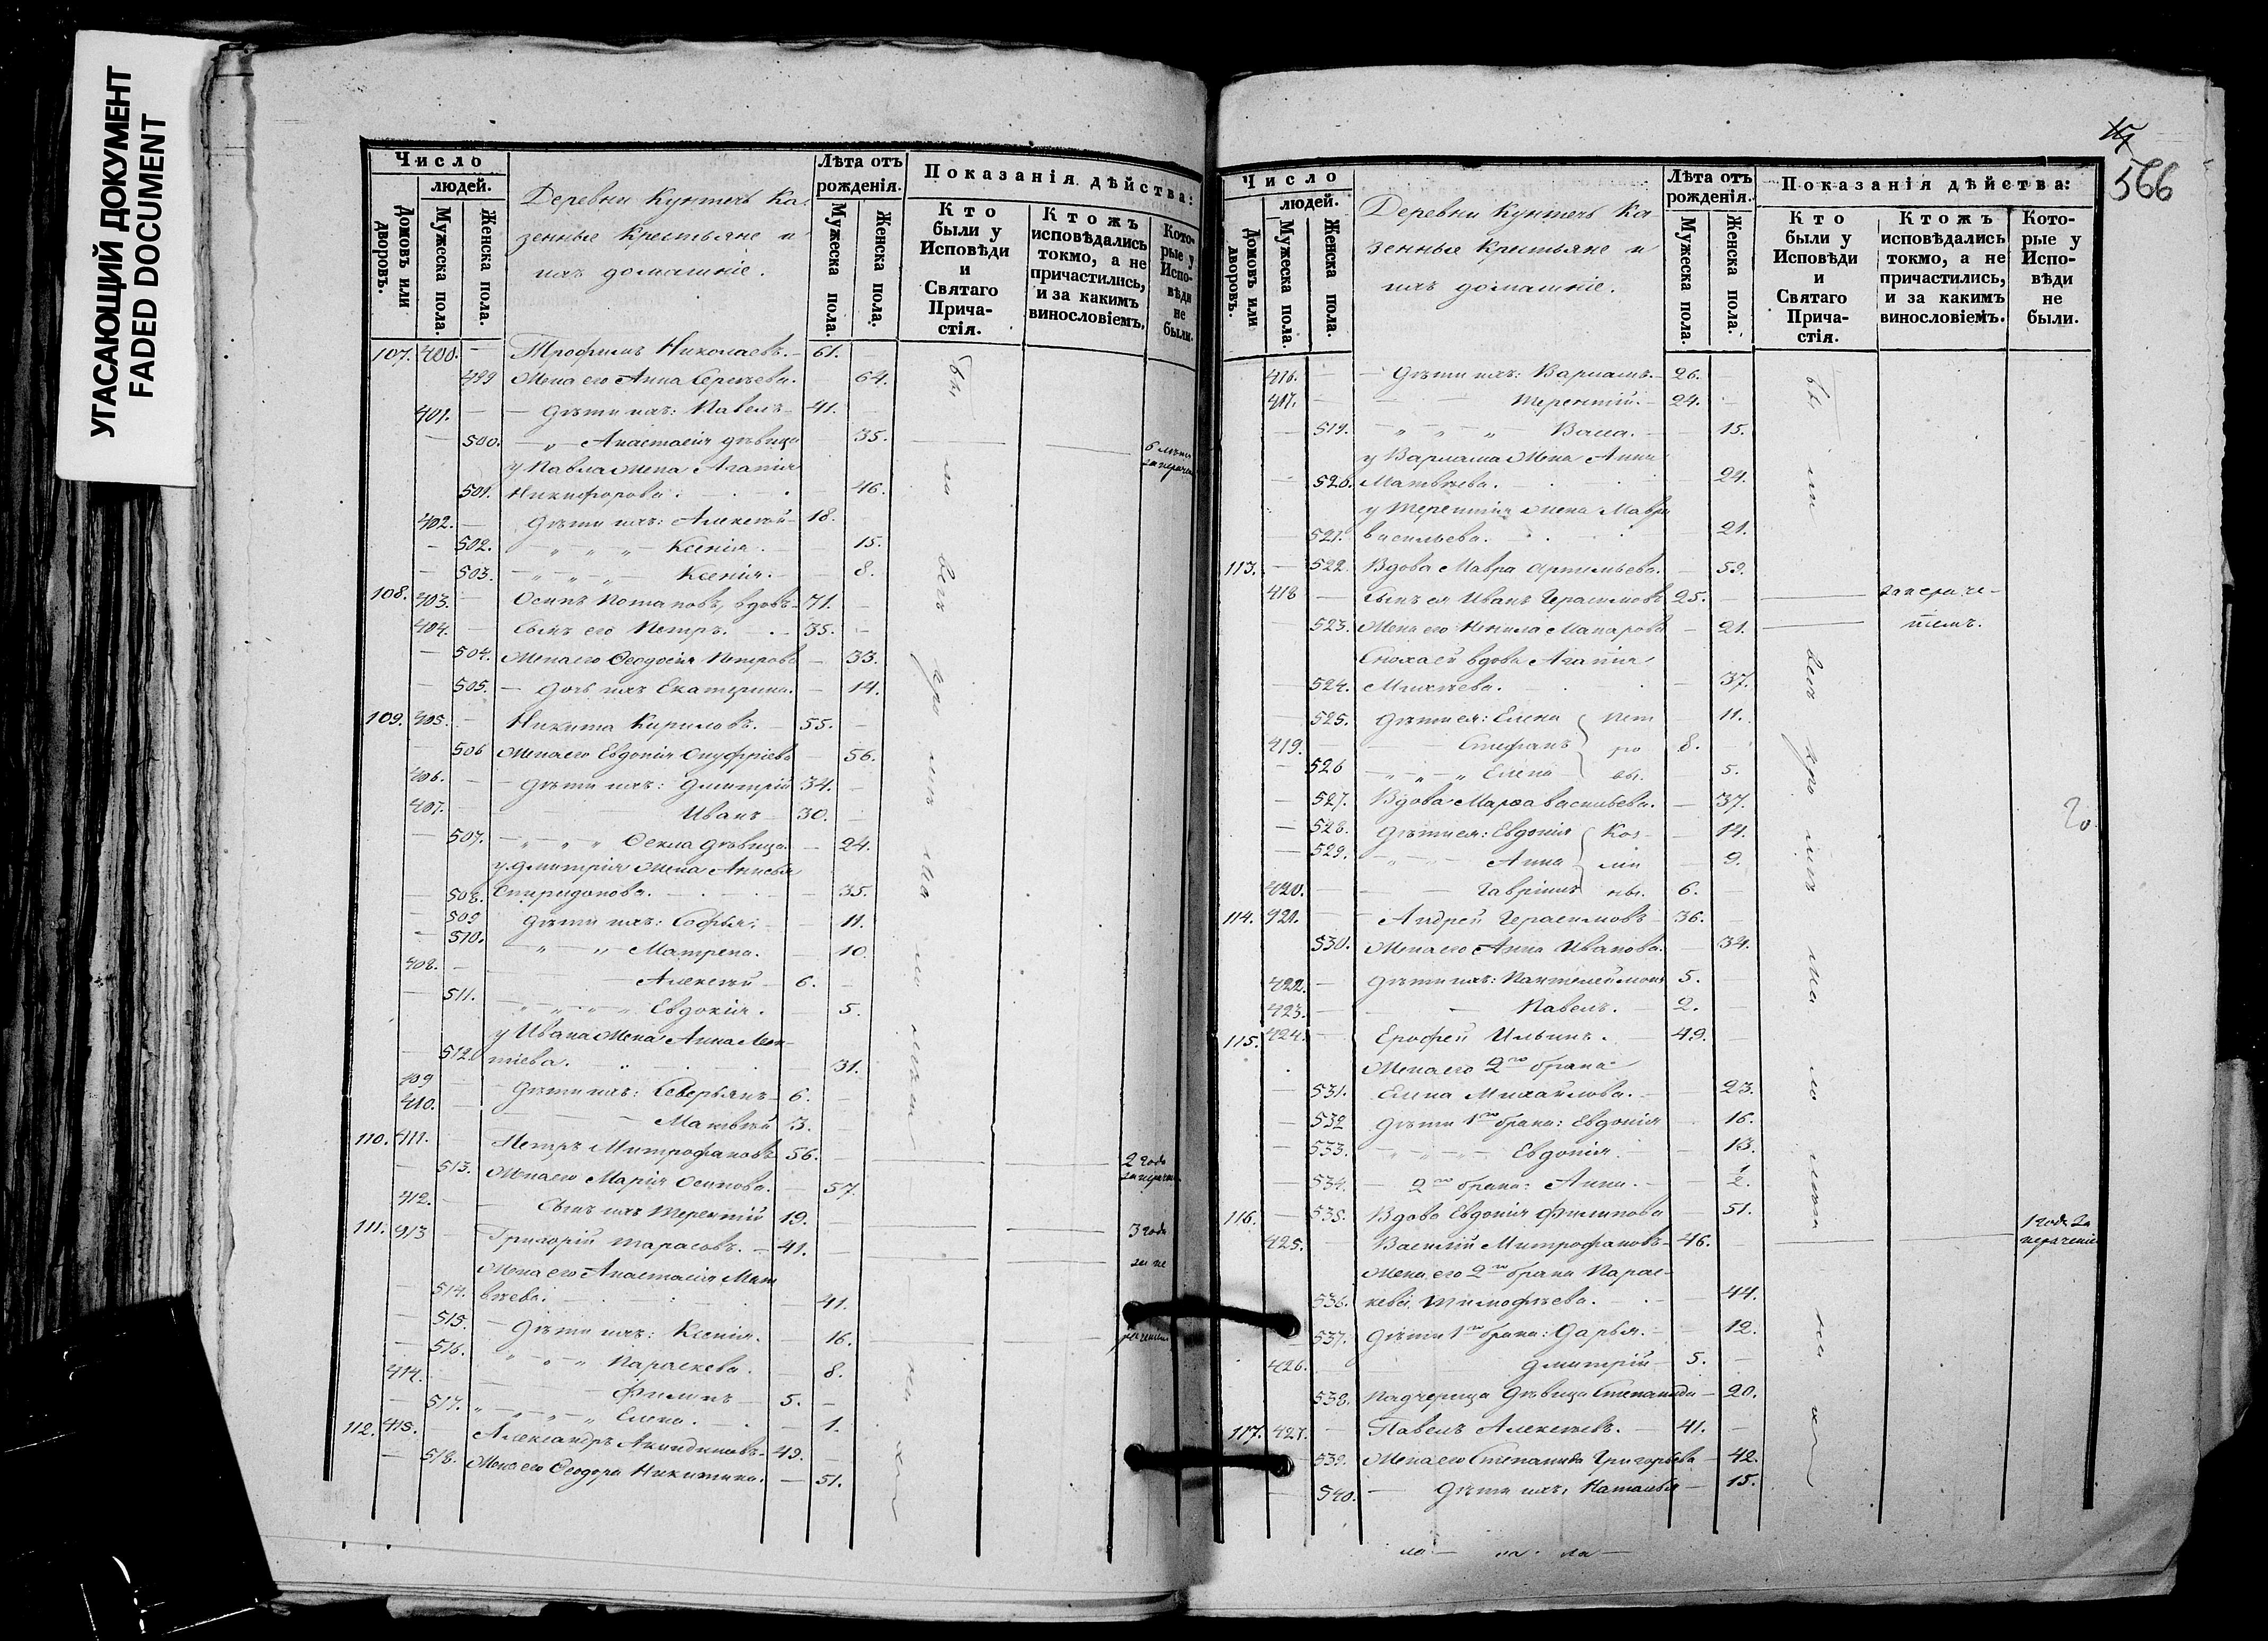 УГАСАЮЩИЙ ДОКУМЕНТ
FADED DOCUMENT
Число
людей.
Домовъ или дворовъ.
Мужеска пола.
Женска пола.
Деревни Кунтечь Ка-
зенные Крестьяне и
ихъ домашніе.
Лѣта отъ
рожденія.
Мужеска пола.
Женска пола.
Показанія дѣйства:
Кто
были у
Исповѣди
и
Святаго
Прича-
стія.
Ктожъ
исповѣдались
токмо, а не
причастились,
и за какимъ
винословіемъ.
Кото-
рые у
Испо-
вѣди
не
были.
107. 400. — Трофимъ Николаевъ. — 61.
499 Жена его Анна Сергѣева. — 64.
401. — Дѣти ихъ: Павелъ — 41.
500. — „ — Анастасія дѣвица 35. 6 лѣтъ
у Павла жена Агапія
501. Никифорова. 46.
402. — Дѣти ихъ: Алексѣй — 18.
502. — „ — „ — „ — Ксенія. — 15.
503. — „ — „ — „ — Ксенія. — 8.
108. 403. — Осипъ Потаповъ, вдовъ — 71.
404. — Сынъ его Петръ. — 35.
504. Жена его Ѳеодосія Петрова — 33.
505. — Дочь ихъ Екатерина. — 14.
109. 405. — Никита Кириловъ. — 55.
506 Жена его Евдокія Онуфріева 56.
406. — Дѣти ихъ: Дмитрій 34.
407. — Иванъ — 30.
507. — „ — „ — „ Ѳекла дѣвица. — 24.
у Дмитрія жена Анисья
508. Спиридонова. — 35.
509 Дѣти ихъ: Софья. — 11.
510. „ — „ — Матрена. — 10.
408. — Алексѣй — 6.
511. — „ — „ — „ Евдокія. 5.
у Ивана жена Анна Леон-
512. тіева. 31.
409 — Дѣти ихъ: Северьянъ — 6.
410. — Матвѣй 3.
110. 411. — Петръ Митрофановъ 56.
513. Жена его Марія Осипова. — 57. 2 года
412. — Сынъ ихъ Терентій 19.
111. 413 — Григорій Тарасовъ. — 41. 3 года
Жена его Анастасія Мат
514. вѣева. 41.
515. — Дѣти ихъ: Ксенія. — 16.
516. „ — „ — „ Параскева. 8.
414. — Филипъ — 5.
517. „ — „ — „ — „ Елена. — 1.
112. 415. — Александръ Акиндиновъ. — 49.
518. Жена его Ѳеодора Никитина. — 51.
566
Число
людей.
Домовъ или дворовъ.
Мужеска пола.
Женска пола.
Деревни Кунтечь Ка-
зенные Крестьяне и
ихъ домашніе.
Лѣта отъ
рожденія.
Мужеска пола.
Женска пола.
Показанія дѣйства:
Кто
были у
Исповѣди
и
Святаго
Прича-
стія.
Ктожъ
исповѣдались
токмо, а не
причастились,
и за какимъ
винословіемъ.
Кото-
рые у
Испо-
вѣди
не
были.
416. — Дѣти ихъ: Варламъ. — 26.
417. — Терентій. — 24.
519. — „ — „ — „ Васса. — 15.
у Варлама жена Анна
520. Матвѣева. 24.
у Терентія жена Мавра
521. Васильева. 21.
113. — 522. Вдова Мавра Артемьева. — 59.
418 — Сынъ ея Иванъ Герасимовъ 25. за нераче-
523. Жена его Ненила Макарова — 21. ніемъ.
Сноха ей вдова Агапія
524. Михѣева. — 37.
525. Дѣти ея: Елена — 11.
Пет
419. — Стефанъ ро 8.
526 — „ — „ Елена вы. 5.
527. Вдова Марѳа Васильева. — 37.
528. Дѣти ея: Евдокія — 14.
529. — Анна — 9.
420. — Гавріилъ 6.
114. 421. — Андрей Герасимовъ — 36.
530. Жена его Анна Иванова. — 34.
422. — Дѣти ихъ: Пантелеймонъ 5.
423. — Павелъ. — 2.
115. 424. — Ерофей Ильинъ. — 49.
Жена его 2го брака
531. Елена Михайлова. — 23.
532 Дѣти 1го брака: Евдокія 16.
533. — „ — „ — Евдокія. — 13.
534. — 2го брака: Анна. — 1/2.
116. — 535. Вдова Евдокія Филипова 51.
425. Василій Митрофановъ — 46. 1 годъ за
нераченіе
Жена его 2го брака Парас-
536. кева Тимофѣева. — 44.
537. Дѣти 1го брака: Дарья. — 12.
426. — Дмитрій — 5.
538. Падчерица дѣвица Степанида — 20.
117. 427. — Павелъ Алексѣевъ. — 41.
539. Жена его Степанида Григорьева — 42.
540. — Дѣти ихъ, Наталья — 15.